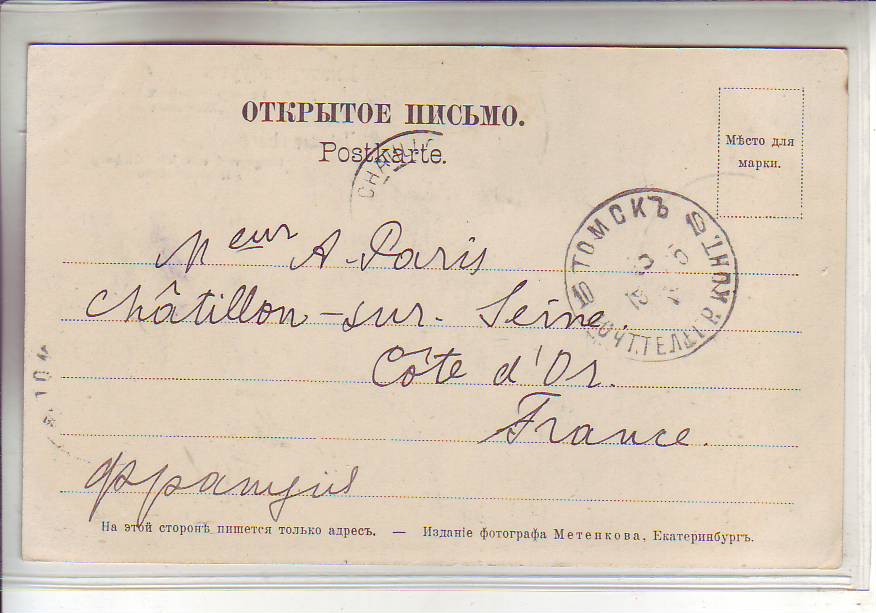 ОТКРЫТОЕ ПИСЬМО.
Postkarte.
CHATILL
Мѣсто для
марки.
ТОМСКЪ
ПОЧТ.ТЕЛ.
10
10
Meur A. Paris
Châtillon-sur-Seine.
Côte d'Or.
France.
Франція
На этой сторонѣ пишется только адресъ. — Изданіе фотографа Метенкова, Екатеринбургъ.